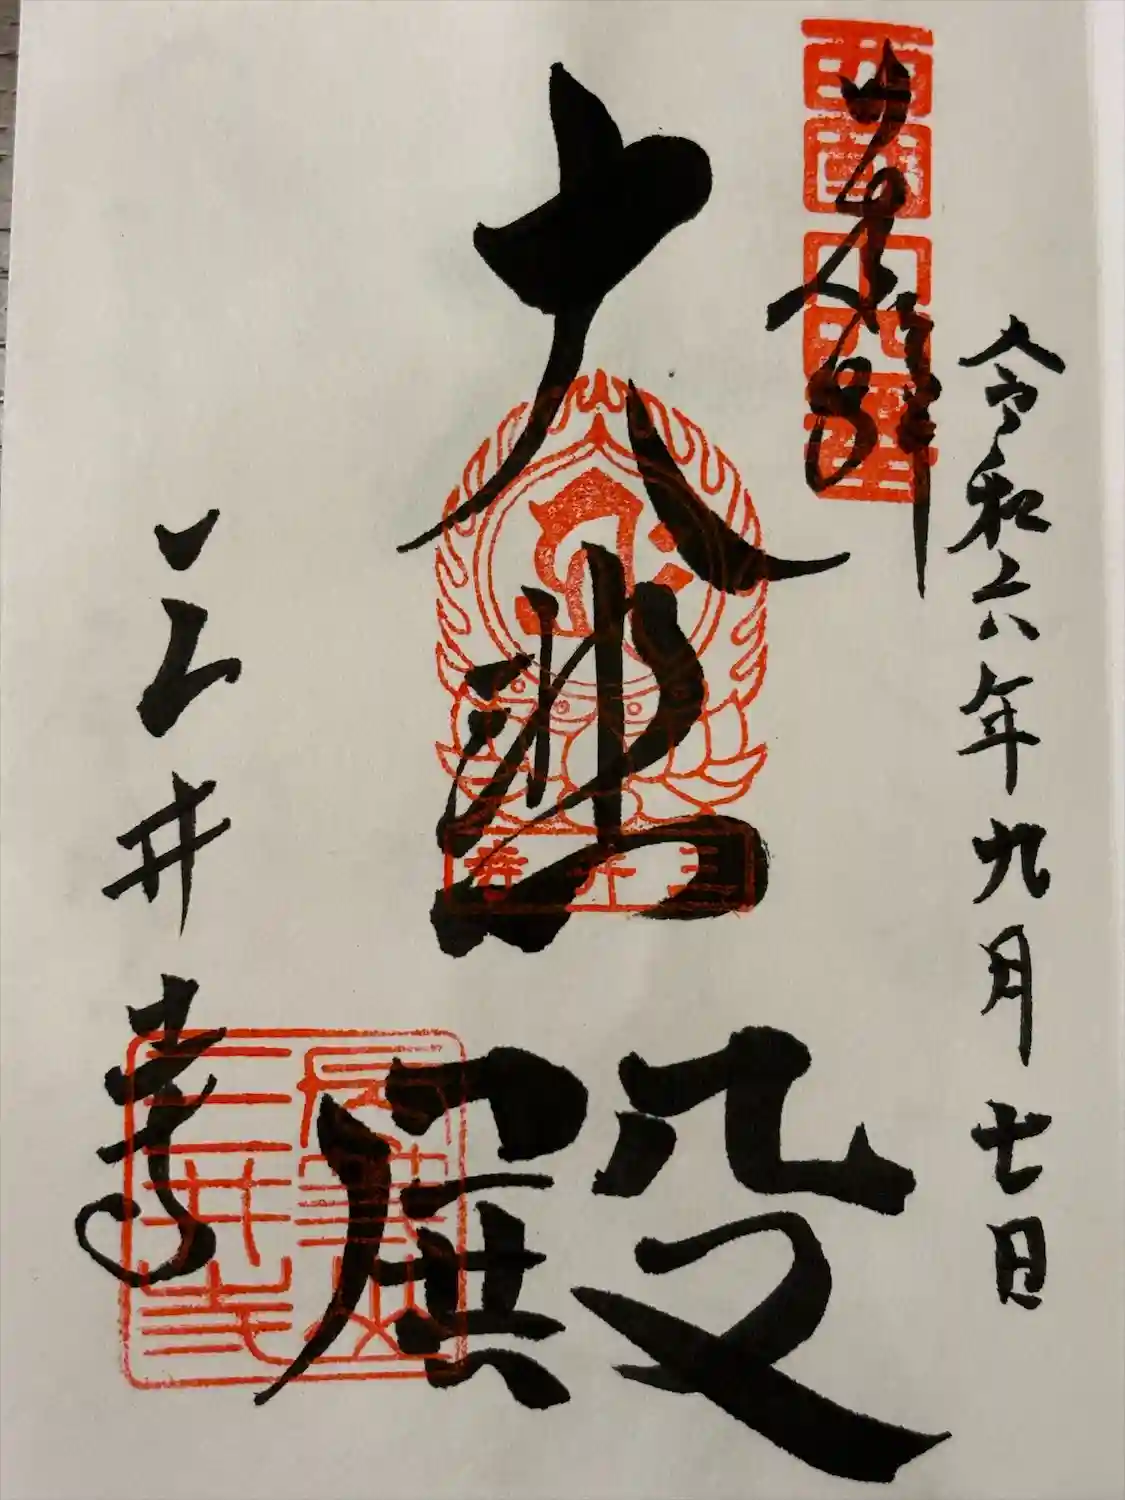 令和六年九月七日
奉拝
西国十四番
大悲殿
三井寺
三井寺
三井寺